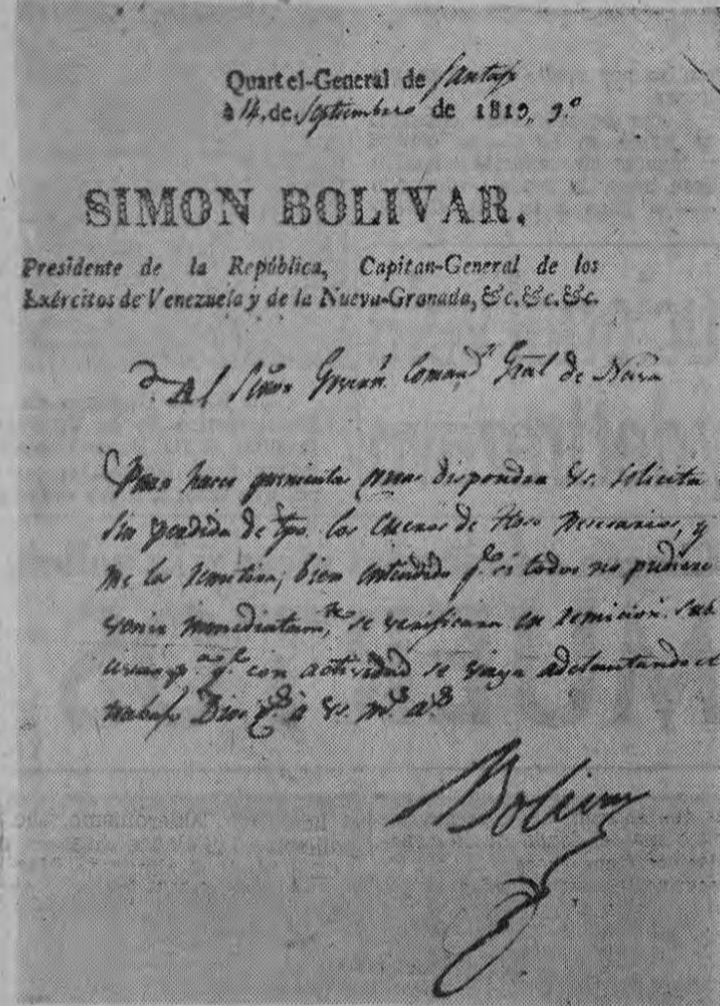 Quartel-General de Santafe
à 14, de Septiembre de 1819, 9.º
SIMON BOLIVAR.
Presidente de la República, Capitan-General de los
Exércitos de Venezuela y de la Nueva-Granada, &c. &c. &c.
Al Señor Govern.r Comand.te Gral de Neiva
Para hacer dispondra Vs. solicitar
sin perdida de tpo. los Cueros de necesarios, y
me los remitira; bien entendido q.e si todos no pudieren
venir immediatam.te se verificara en remicion
q.e con actividad se vaya adelantando el
trabajo Dios g.de à Vs. m.s a.s
Bolivar